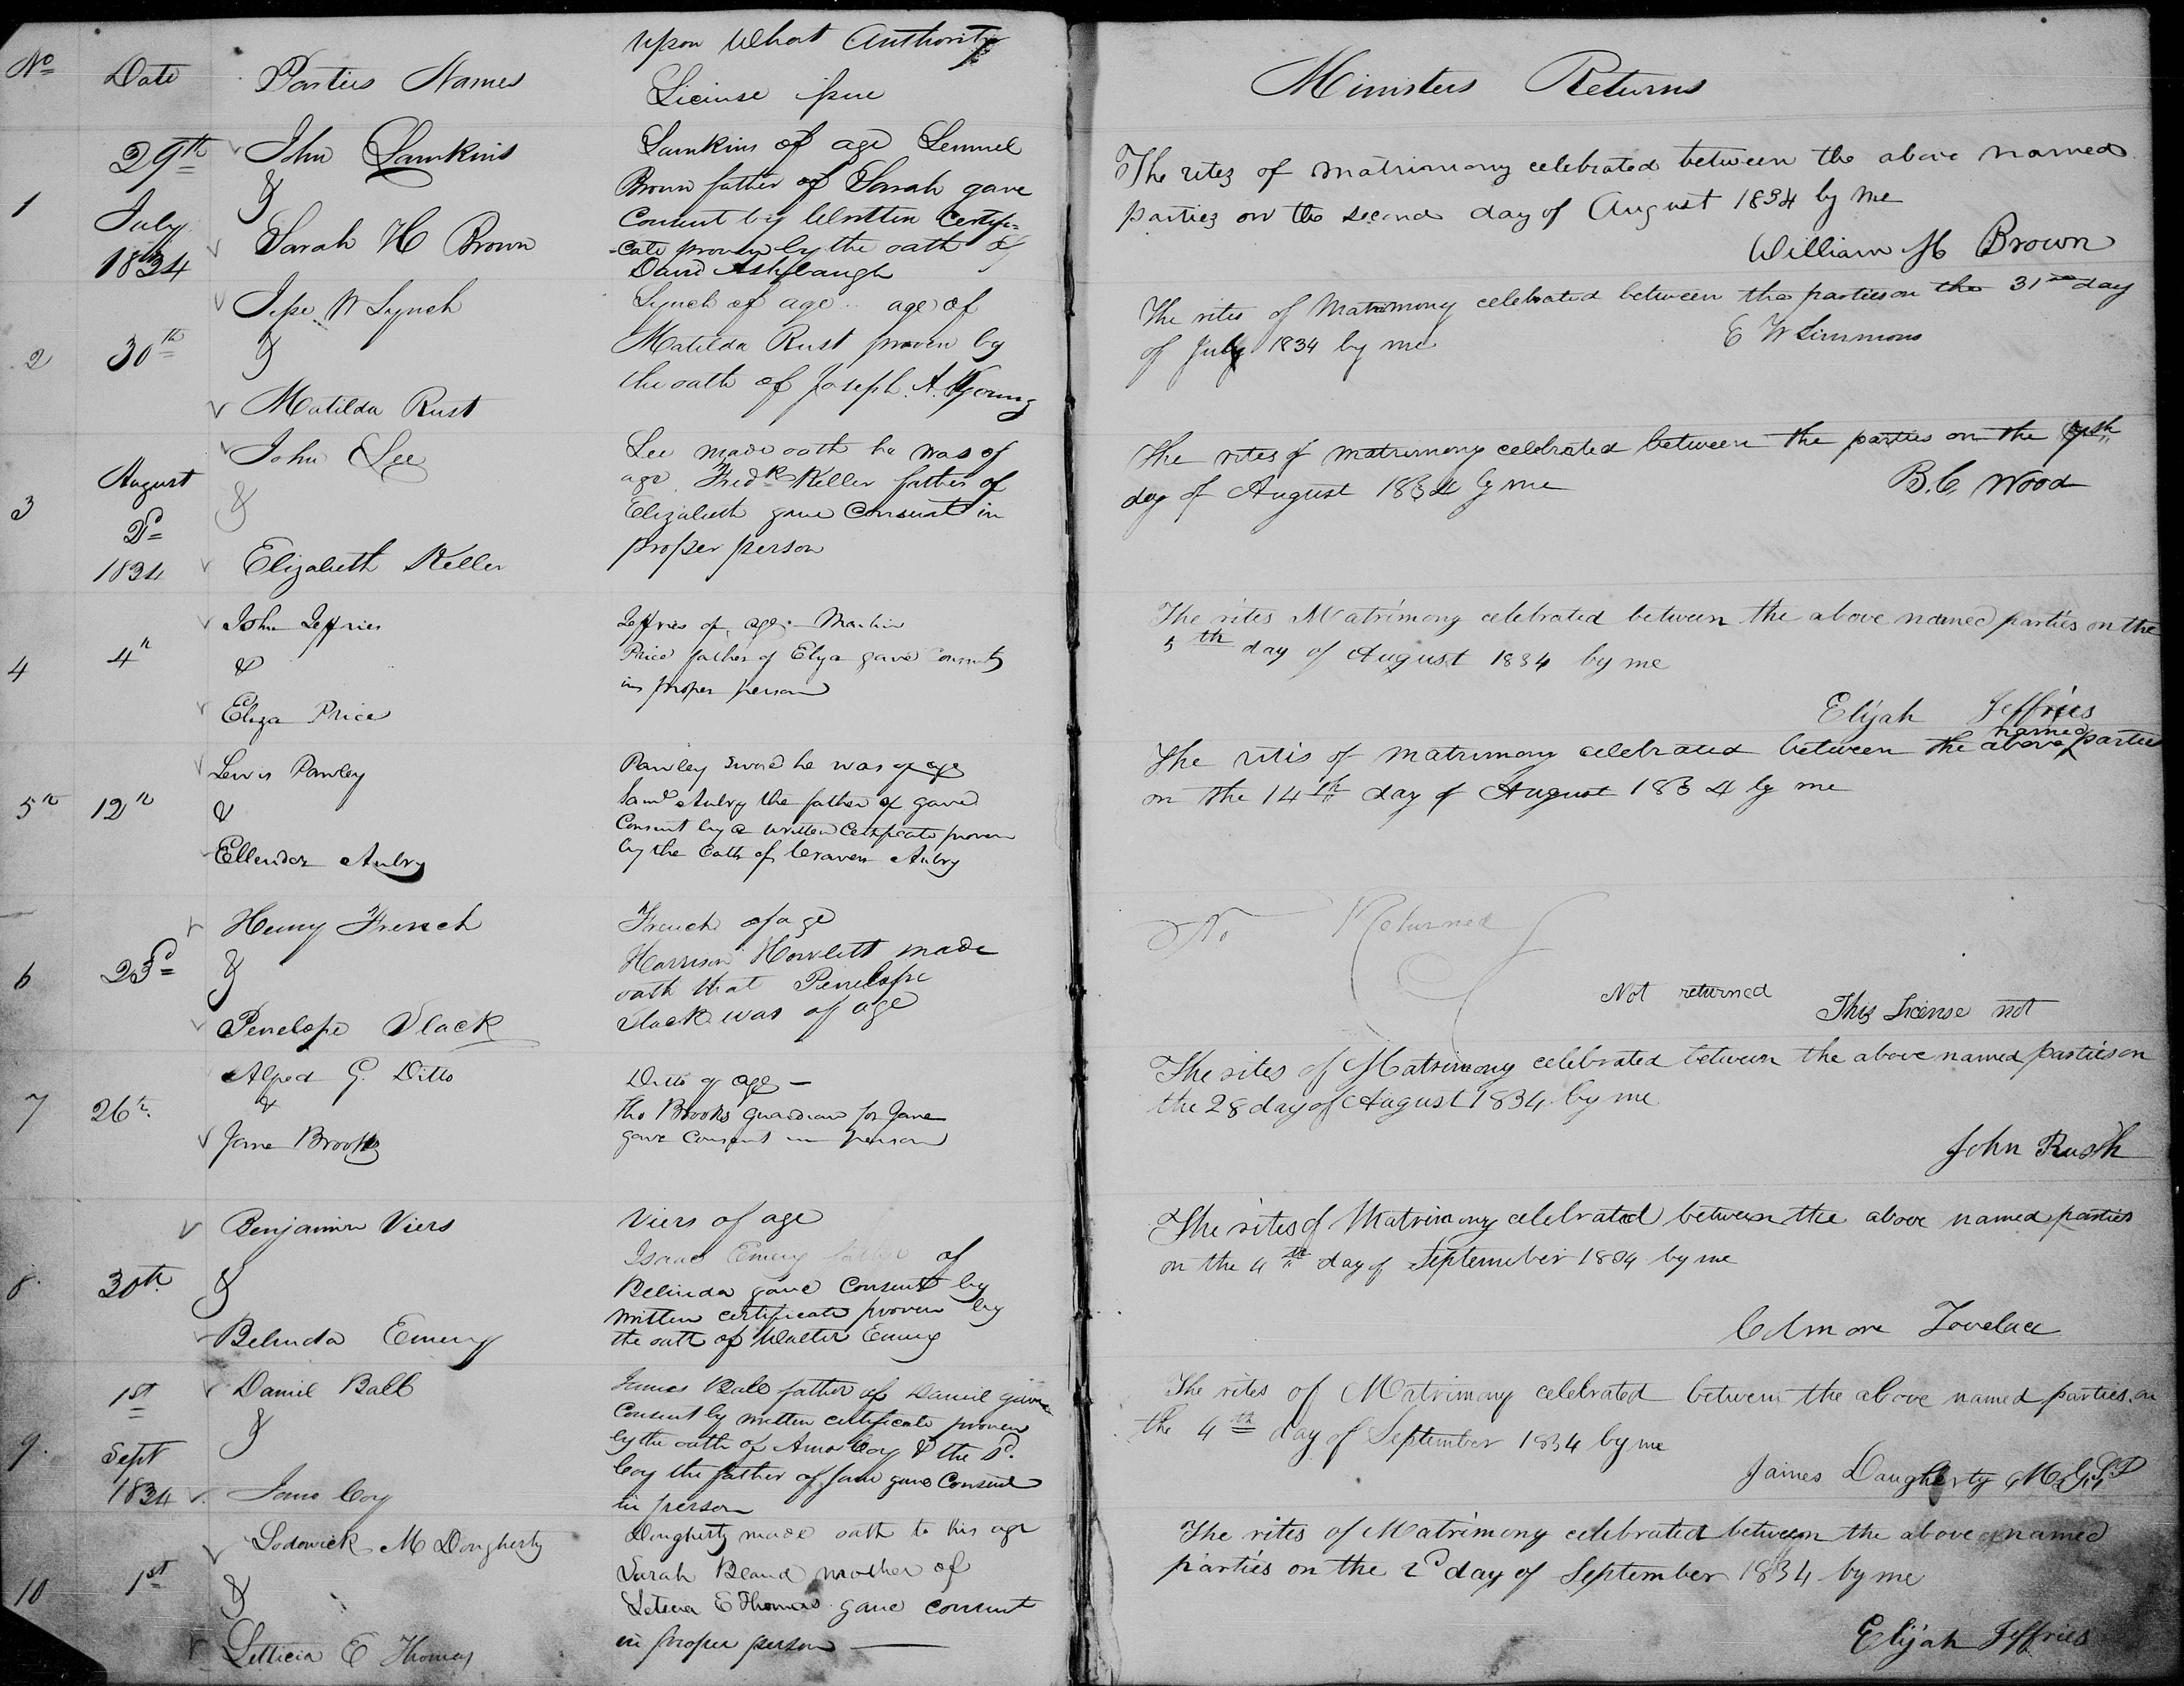 No Date Parties Names Upon What Authority
License issue
1 29th July 1834
John Lamkins
&
Sarah H Brown
Lamkins of age Lemuel
Brown father of Sarah gave
Consent by Written Certifi=
-cate proven by the oath of
David Ashbaugh
2 30th
Jesse W Lynch
&
Matilda Rust
Lynch of age age of
Matilda Rust proven by
the oath of Joseph A. Young
3 August 2d 1834
John Lee
&
Elizabeth Keller
Lee made oath he was of
age Fredk Keller father of
Elizabeth gave Consent in
proper person
4 4th
John Jeffries
&
Eliza Price
Jeffries of age
Price father of Elza gave Consent
in proper person
5th 12th
Lewis Pawley
&
Ellender Aubry
Pawley swore he was of age
Saml Aubry the father of gave
Consent by a written Certificate proven
by the Oath of Craven Aubry
6 23d
Henry French
&
Penelope Vlack
French of age
Harrison Howlett made
oath that Penelope
Vlack was of age
7 26th
Alfred G. Ditto
&
Jane Brooks
Ditto of age —
Tho Brooks guardian for Jane
gave Consent in person
8. 30th
Benjamin Viers
&
Belinda Emery
Viers of age
Isaac Emery father of
Belinda gave Consent by
written certificate proven by
the oath of Walter Emery
9. 1st Sept 1834
Daniel Ball
&
Jane Coy
James Ball father of Daniel gave
Consent by written certificate proven
by the oath of Amos Coy & the sd.
Coy the father of Jane gave Consent
in person
10 1st
Lodowick M Dougherty
&
Letticia E Thomas
Dougherty made oath to his age
Sarah Bland mother of
Leticia E Thomas gave consent
in proper person —
Ministers Returns
The rites of matrimony celebrated between the above named
parties on the second day of August 1834 by me
William H Brown
The rites of Matrimony celebrated between the parties on the 31st day
of July 1834 by me E W Simmons
The rites of matrimony celebrated between the parties on the 7th
day of August 1834 by me B. C. Wood
The rites Matrimony celebrated between the above named parties on the
5th day of August 1834 by me
Elijah Jeffries
The rites of matrimony celebrated between the above named parties
on the 14th day of August 1834 by me
No Returned
Not returned This License not
The rites of Matrimony celebrated between the above named parties on
the 28 day of August 1834 by me
John Rush
The rites of Matrimony celebrated between the above named parties
on the 4th day of September 1834 by me
Colmore Lovelace
The rites of Matrimony celebrated between the above named parties on
the 4th day of September 1834 by me
James Daugherty
The rites of Matrimony celebrated between the above named
parties on the 2d day of September 1834 by me
Elijah Jeffries